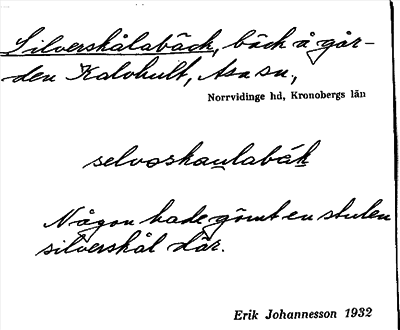 Silverskålabäck, bäck å går-
den Kalvhult, Asa sn,
Norrvidinge hd, Kronobergs län
selvərskaulabák
Någon hade gömt en stulen
silverskål där.
Erik Johannesson 1932